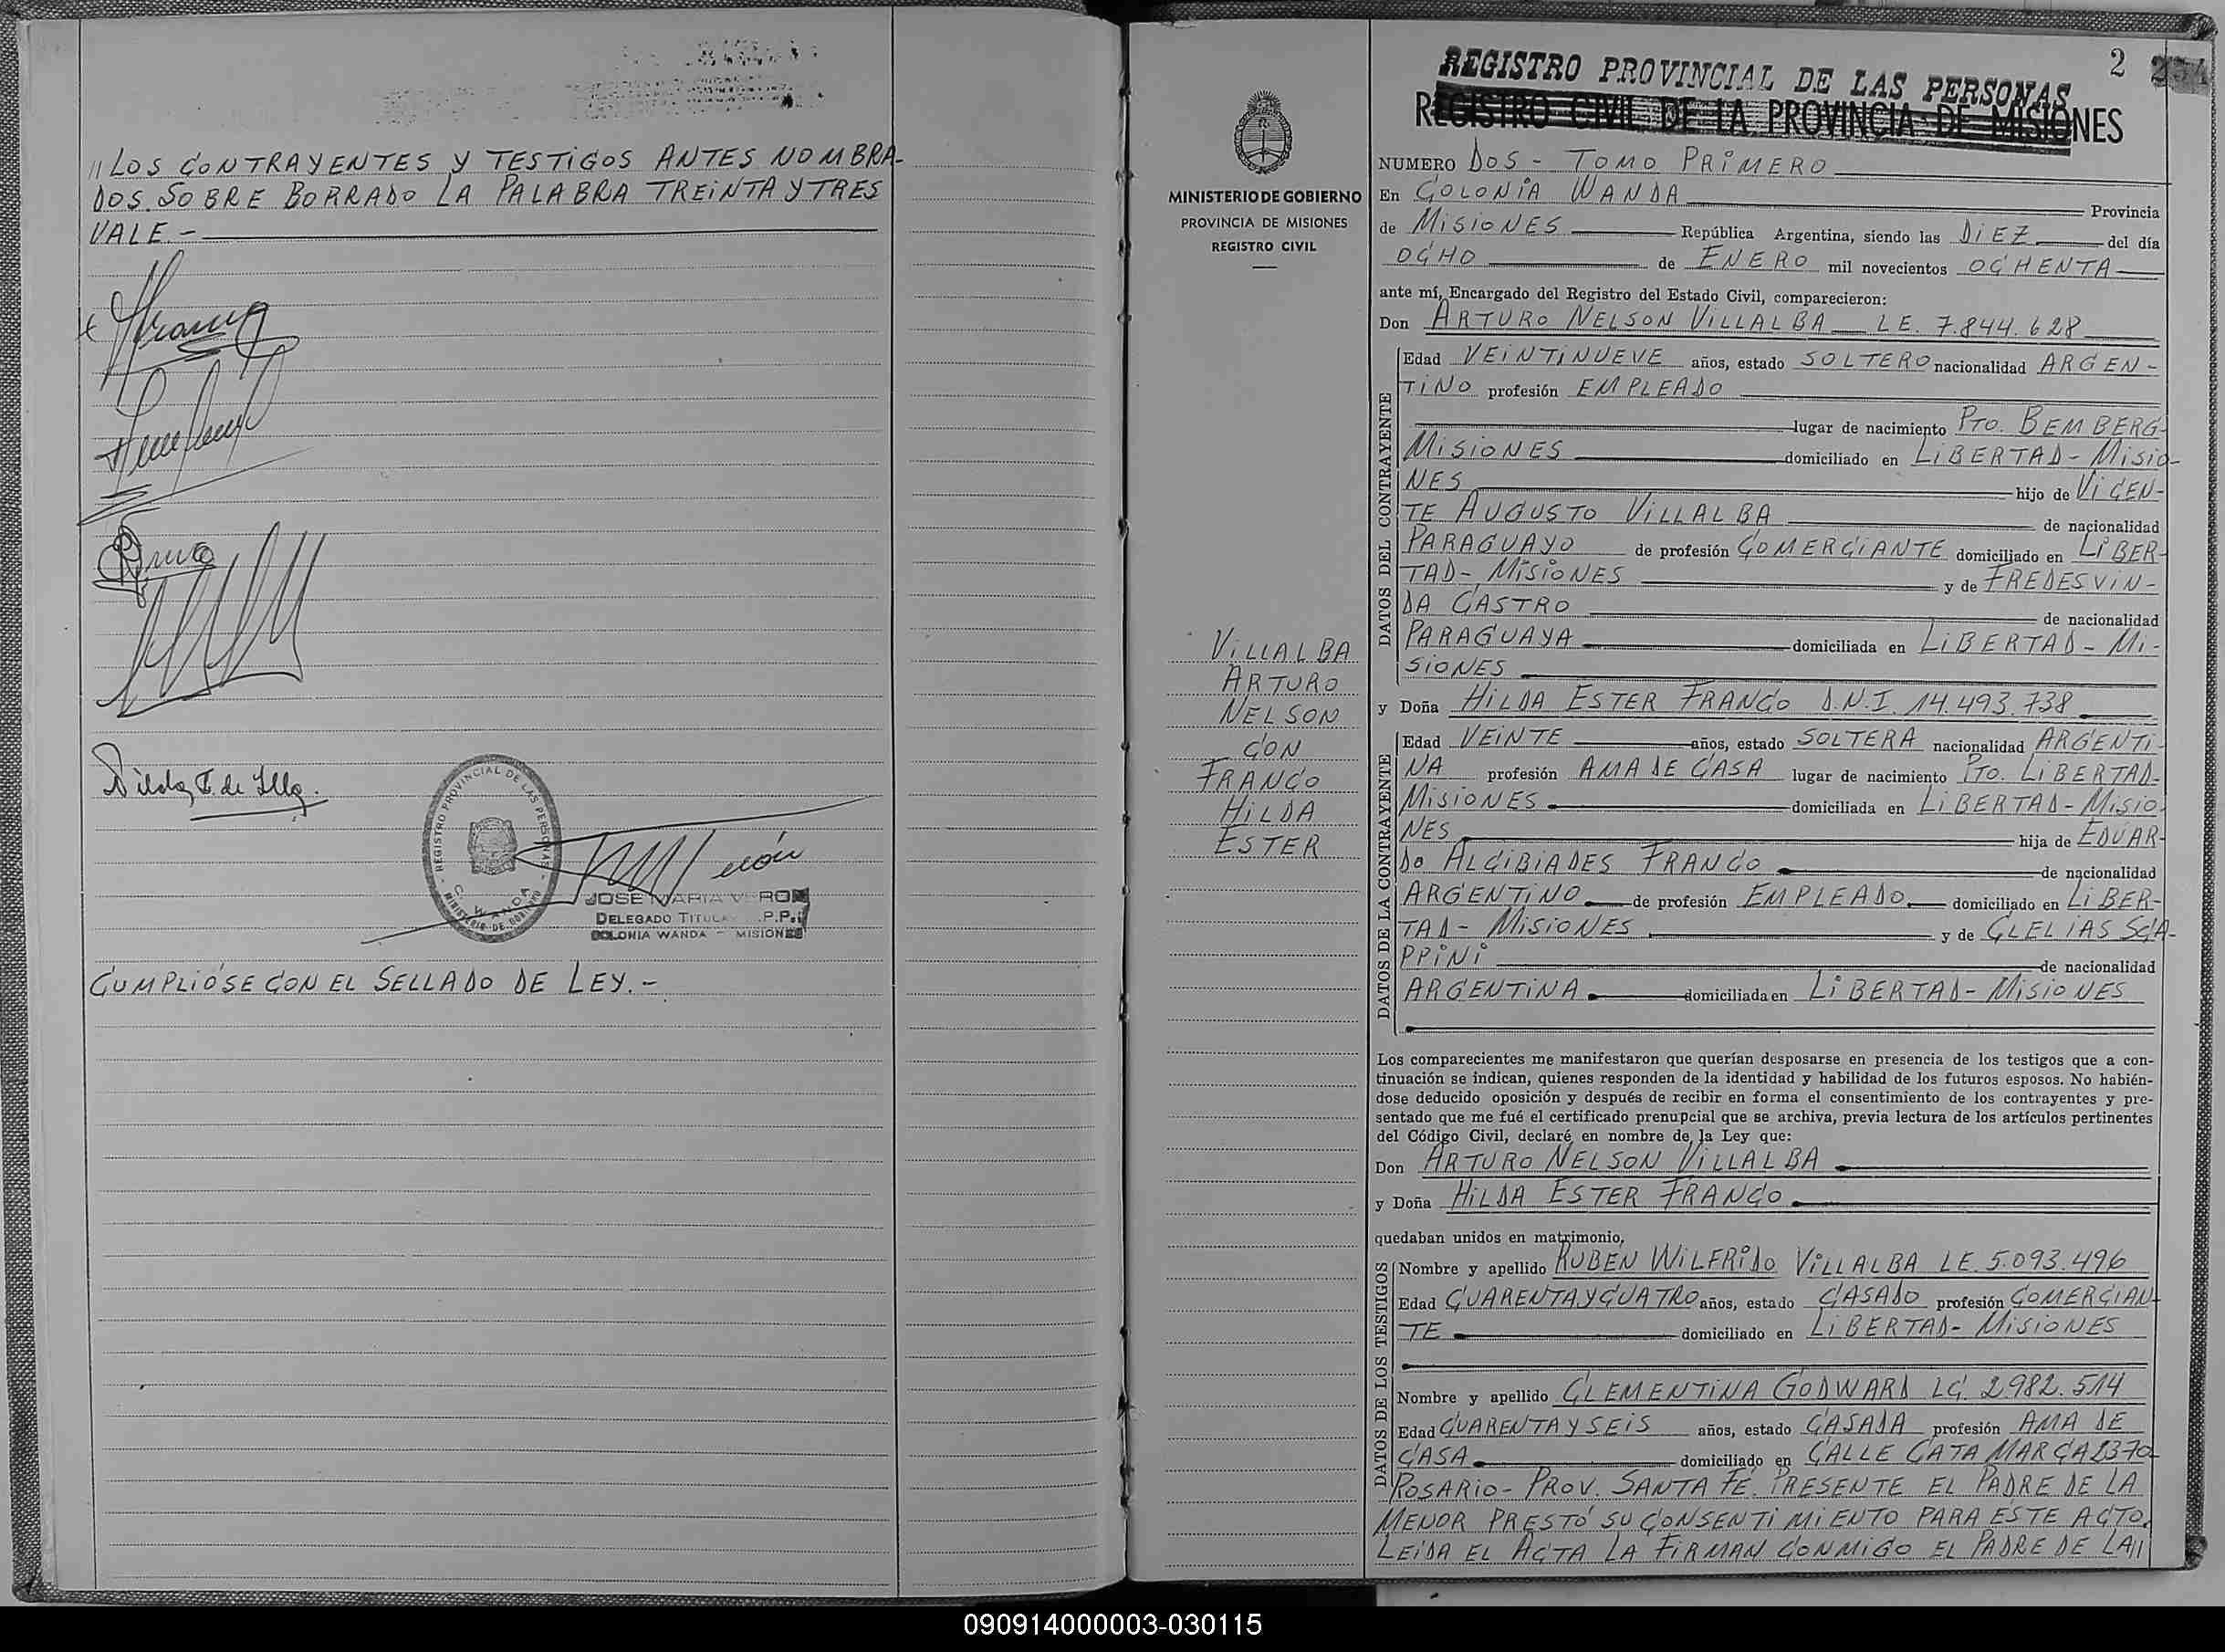 11 LOS CONTRAYENTES Y TESTIGOS ANTES NOMBRA-
DOS. SOBRE BORRADO LA PALABRA TREINTA Y TRES
VALE.-
Hilda F. de
REGISTRO PROVINCIAL DE LAS PERSONAS
C. WANDA
MINISTERIO DE GOBIERNO
JOSE MARIA VERON
DELEGADO TITULAR .P.P.
COLONIA WANDA - MISIONES
CUMPLIÓSE CON EL SELLADO DE LEY.-
MINISTERIO DE GOBIERNO
PROVINCIA DE MISIONES
REGISTRO CIVIL
VILLALBA
ARTURO
NELSON
CON
FRANCO
HILDA
ESTER
2
REGISTRO PROVINCIAL DE LAS PERSONAS
REGISTRO CIVIL DE LA PROVINCIA DE MISIONES
NUMERO DOS - TOMO PRIMERO
En COLONIA WANDA Provincia
de MISIONES República Argentina, siendo las DIEZ del día
OCHO de ENERO mil novecientos OCHENTA
ante mí, Encargado del Registro del Estado Civil, comparecieron:
Don ARTURO NELSON VILLALBA LE. 7.844.628
DATOS DEL CONTRAYENTE
Edad VEINTINUEVE años, estado SOLTERO nacionalidad ARGEN-
TINO profesión EMPLEADO
lugar de nacimiento PTO. BEMBERG-
MISIONES domiciliado en LIBERTAD - MISIO-
NES hijo de VICEN-
TE AUGUSTO VILLALBA de nacionalidad
PARAGUAYO de profesión COMERCIANTE domiciliado en LIBER-
TAD - MISIONES y de FREDESVIN-
DA CASTRO de nacionalidad
PARAGUAYA domiciliada en LIBERTAD - MI-
SIONES
y Doña HILDA ESTER FRANCO D.N.I. 14.493.738
DATOS DE LA CONTRAYENTE
Edad VEINTE años, estado SOLTERA nacionalidad ARGENTI-
NA profesión AMA DE CASA lugar de nacimiento PTO. LIBERTAD-
MISIONES domiciliada en LIBERTAD - MISIO-
NES hija de EDUAR-
DO ALCIBIADES FRANCO de nacionalidad
ARGENTINO de profesión EMPLEADO domiciliado en LIBER-
TAD - MISIONES y de CLELIAS SCA-
PPINI de nacionalidad
ARGENTINA domiciliada en LIBERTAD - MISIONES
Los comparecientes me manifestaron que querían desposarse en presencia de los testigos que a con-
tinuación se indican, quienes responden de la identidad y habilidad de los futuros esposos. No habién-
dose deducido oposición y después de recibir en forma el consentimiento de los contrayentes y pre-
sentado que me fué el certificado prenupcial que se archiva, previa lectura de los artículos pertinentes
del Código Civil, declaré en nombre de la Ley que:
Don ARTURO NELSON VILLALBA
y Doña HILDA ESTER FRANCO
quedaban unidos en matrimonio,
DATOS DE LOS TESTIGOS
Nombre y apellido RUBEN WILFRIDO VILLALBA LE. 5.093.496
Edad CUARENTA Y CUATRO años, estado CASADO profesión COMERCIAN-
TE domiciliado en LIBERTAD - MISIONES
Nombre y apellido CLEMENTINA GODWARD LC. 2.982.514
Edad CUARENTA Y SEIS años, estado CASADA profesión AMA DE
CASA domiciliado en CALLE CATAMARCA 2370
ROSARIO - PROV. SANTA FE. PRESENTE EL PADRE DE LA
MENOR PRESTÓ SU CONSENTIMIENTO PARA ESTE ACTO.
LEIDA EL ACTA LA FIRMAN CONMIGO EL PADRE DE LA 11
090914000003-030115